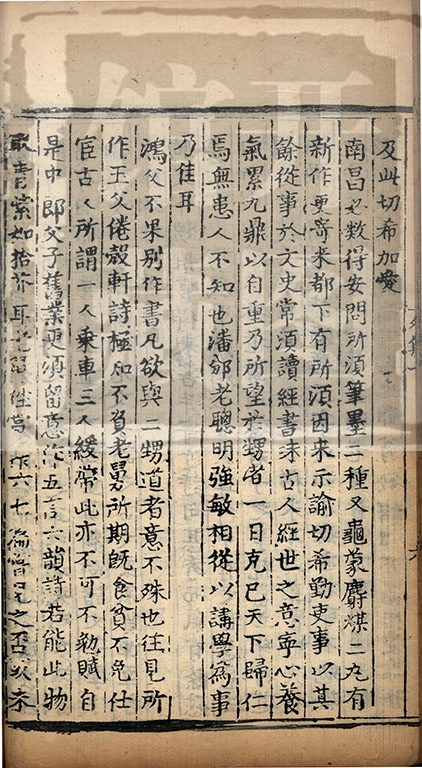 及此切希加愛
南昌必數得安問所須筆墨二種又龜蒙麝煤二丸有
新作更寄來都下有所須因來示諭切希勤吏事以其
餘從事於文史常須讀經書味古人經世之意寧心養
氣累九鼎以自重乃所望於甥者一日克已天下歸仁
焉無患人不知也潘邠老聰明強敏相從以講學為事
乃佳耳
鴻父不果別作書凡欲與二甥道者意不殊也往見所
作王父倦殼軒詩極知不負老舅所期旣食貧不免仕
宦古人所謂一人乘車三人緩帶此亦不可不勉賦自
是中郎父子舊業更須留意作五言六韻詩若能此物
取青紫如拾芥耳老舅往嘗作六七篇曾見之否以來